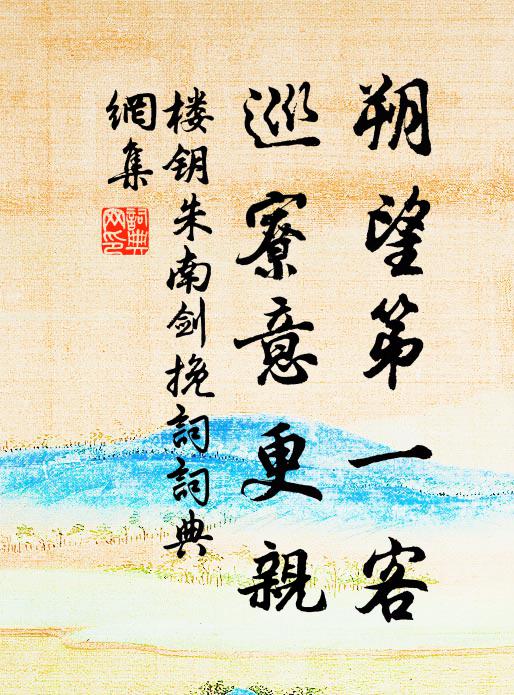 朔望第一客
巡寮意更親
楼钥朱南剑挽詞詞典
網集
詞典網印